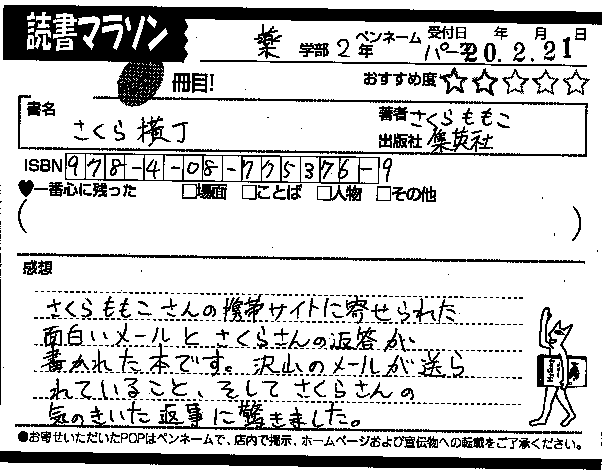 読書マラソン
薬 学部 2年 ペンネーム 受付日 年 月 日
20.2.21
冊目!
おすすめ度☆☆☆☆☆
書名 さくら横丁
著者 さくらももこ
出版社 集英社
ISBN 978-4-08-775376-9
♥一番心に残った □場面 □ことば □人物 □その他
( )
感想
さくらももこさんの携帯サイトに寄せられた
面白いメールとさくらさんの返答が
書かれた本です。沢山のメールが送ら
れていること、そしてさくらさんの
気のきいた返事に驚きました。
●お寄せいただいたPOPはペンネームで、店内で掲示、ホームページおよび宣伝物への転載をご了承ください。